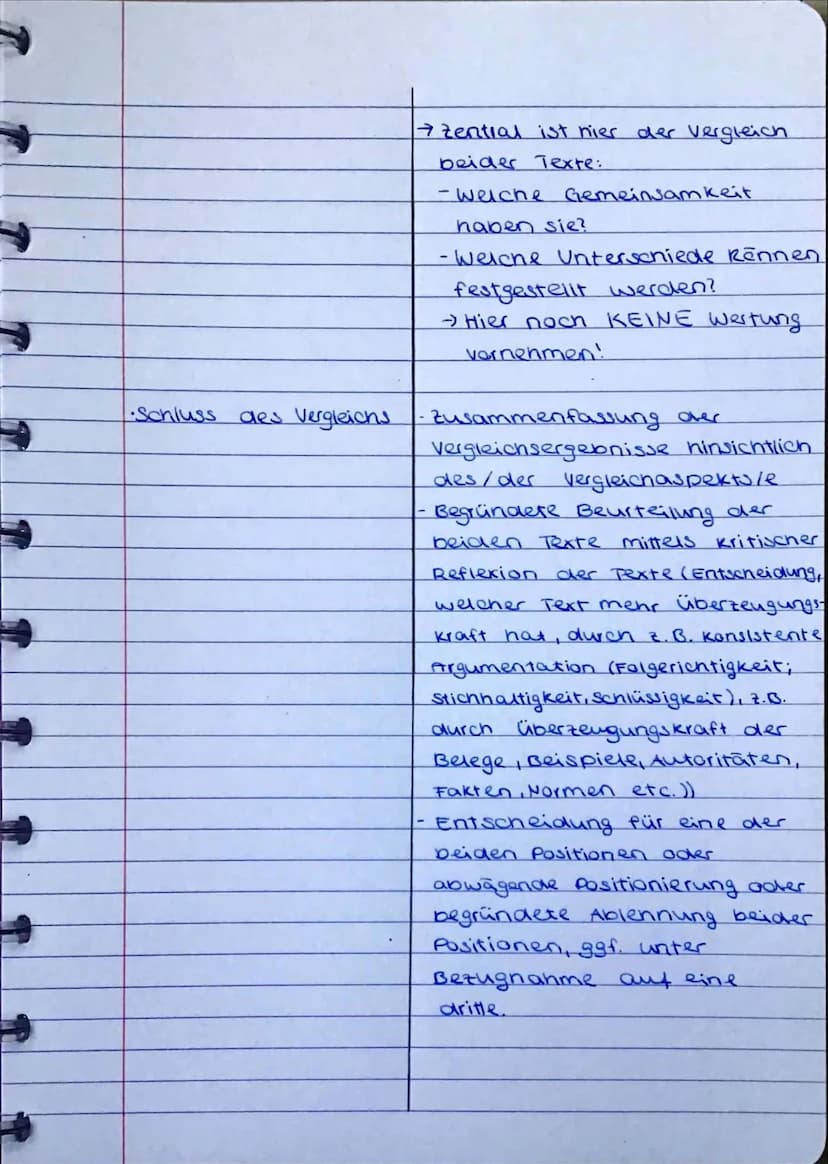 → Zentral ist hier der Vergleich
beider Texte:
- Welche Gemeinsamkeit
haben sie?
- Welche Unterschiede können
festgestellt werden?
→ Hier noch KEINE Wertung
vornehmen!
·Schluss des Vergleichs
- Zusammenfassung der
Vergleichsergebnisse hinsichtlich
des/der Vergleichaspekts/e
- Begründete Beurteilung der
beiden Texte mittels kritischer
Reflexion der Texte (Entscheidung,
welcher Text mehr Überzeugungs-
kraft hat, durch z.B. konsistente
Argumentation (Folgerichtigkeit;
Stichhaltigkeit, Schlüssigkeit), z.B.
durch Überzeugungskraft der
Belege, Beispiele, Autoritäten,
Fakten, Normen etc.))
- Entscheidung für eine der
beiden Positionen oder
abwägende Positionierung oder
begründete Ablennung beider
Positionen, ggf. unter
Bezugnahme auf eine
dritte.